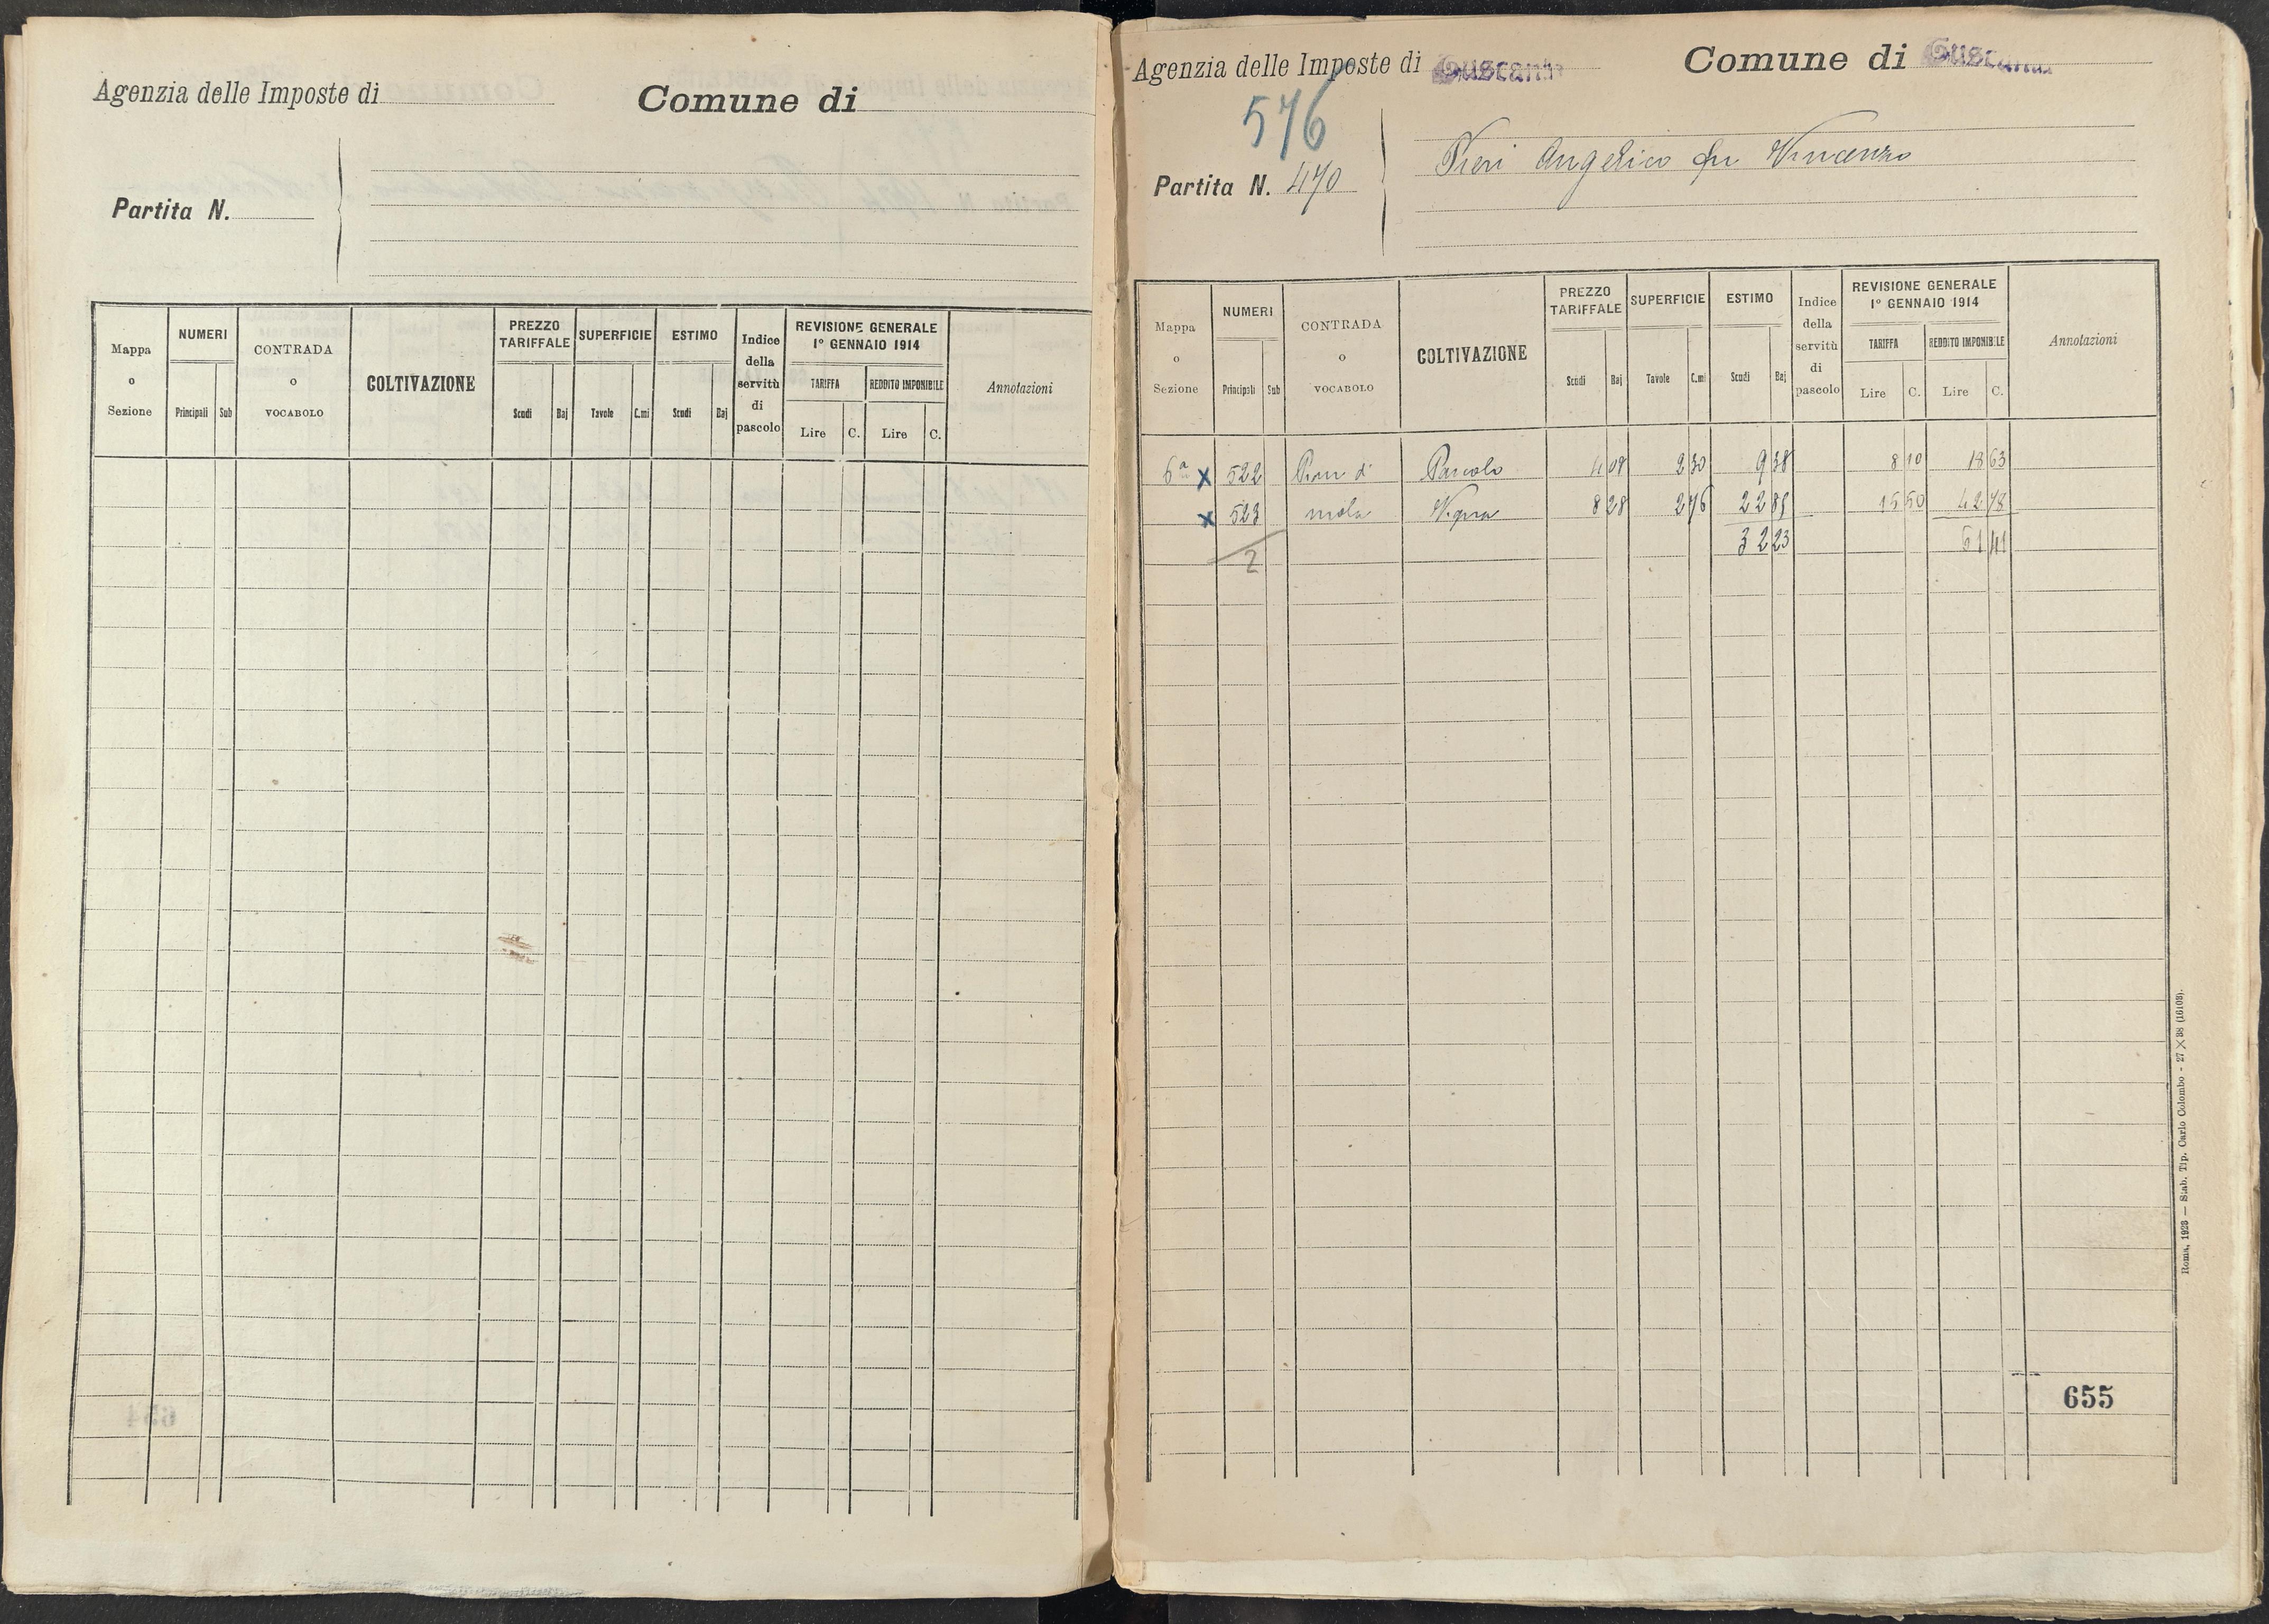 Agenzia delle Imposte di
Comune di
Partita N.
Mappa o Sezione
NUMERI
Principali
Sub
CONTRADA o VOCABOLO
COLTIVAZIONE
PREZZO TARIFFALE
Scudi
Baj
SUPERFICIE
Tavole
C.mi
ESTIMO
Scudi
Baj
Indice della servitù di pascolo
REVISIONE GENERALE 1° GENNAIO 1914
TARIFFA
Lire
C.
REDDITO IMPONIBILE
Lire
C.
Annotazioni
Agenzia delle Imposte di Tuscania
Comune di Tuscania
576
Partita N. 470
Pieri Angelico fu Vincenzo
Mappa o Sezione
NUMERI
Principali
Sub
CONTRADA o VOCABOLO
COLTIVAZIONE
PREZZO TARIFFALE
Scudi
Baj
SUPERFICIE
Tavole
C.mi
ESTIMO
Scudi
Baj
Indice della servitù di pascolo
REVISIONE GENERALE 1° GENNAIO 1914
TARIFFA
Lire
C.
REDDITO IMPONIBILE
Lire
C.
Annotazioni
6a x 522 Pian di Pascolo 4 08 2 30 9 38 8 10 18 63
x 523 mola Vigna 8 28 2 76 22 85 15 50 42 78
2 32 23 61 41
655
Roma, 1923 — Stab. Tip. Carlo Colombo - 27 X 38 (16103).